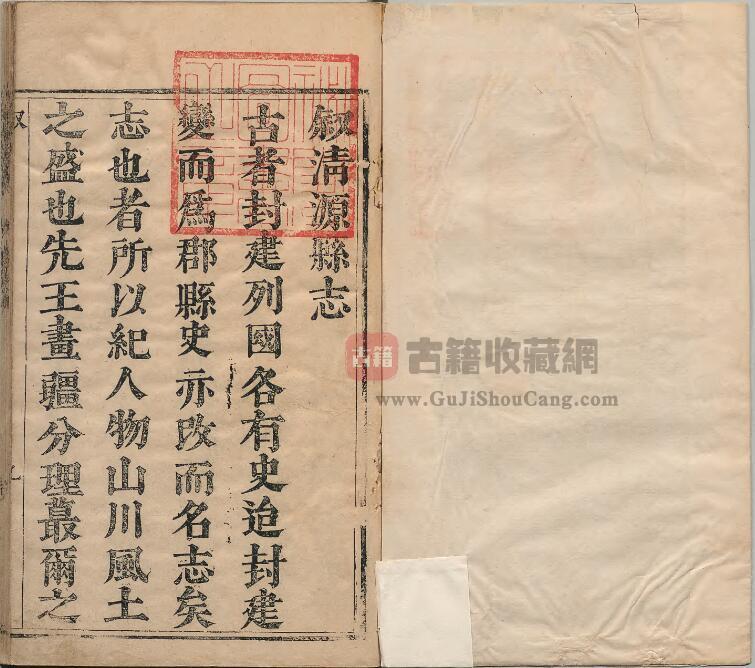 叙清源縣志
古者封建列國各有史迨封建
變而爲郡縣史亦改而名志矣
志也者所以紀人物山川風土
之盛也先王畫疆分理蕞爾之
叙
古籍 古籍收藏網
www.GuJiShouCang.com